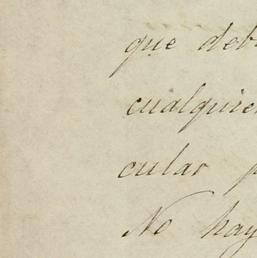 que deb
cualquie
cular p
No hay